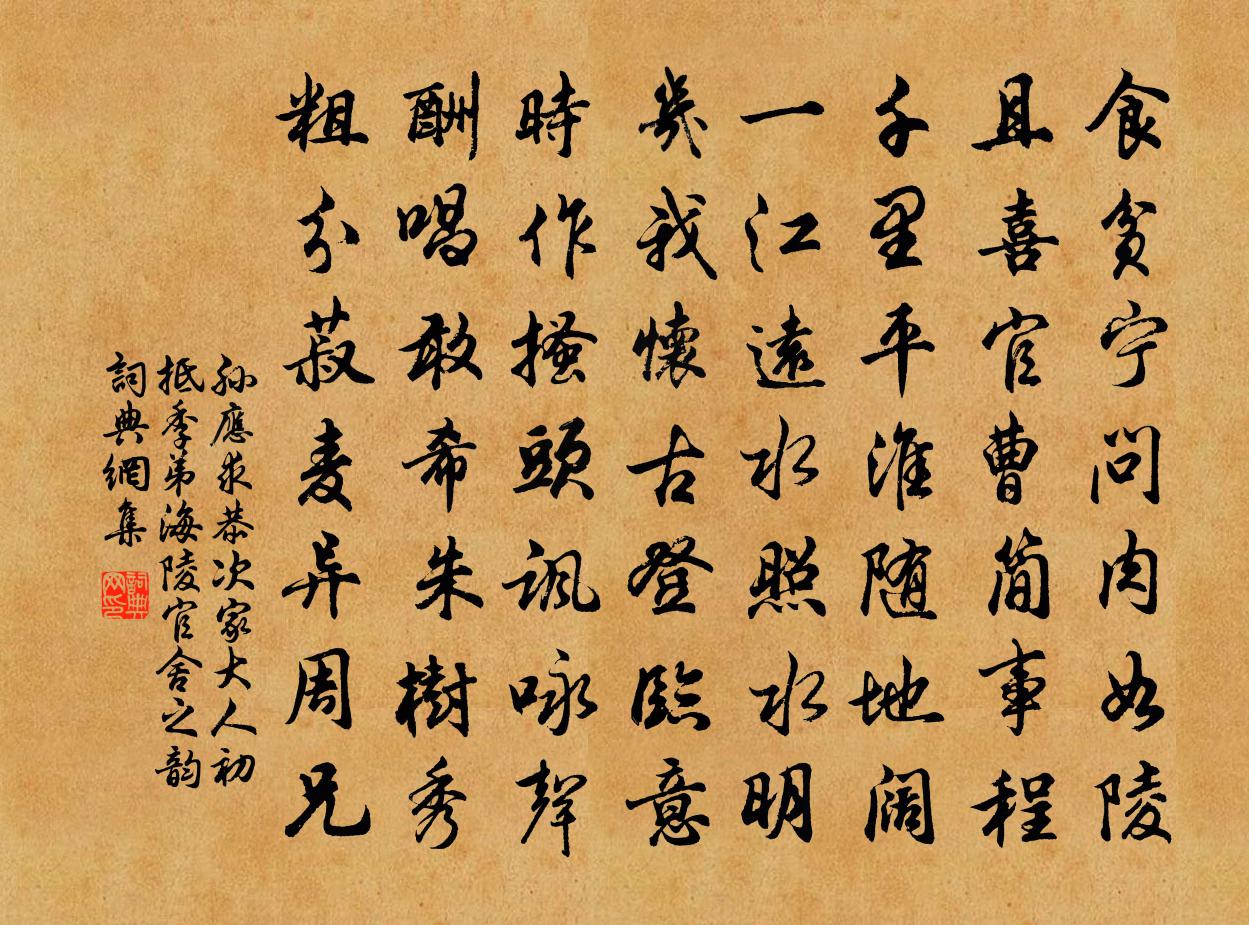 食贫宁问肉如陵
且喜官曹简事程
千里平淮随地阔
一江遠水照水明
幾我懷古登臨意
時作搔頭諷咏聲
酬唱敢希朱樹秀
粗分菽麦异周兄
孙應求恭次家大人初
抵季弟海陵官舍之韵
詞典網集
詞典网印